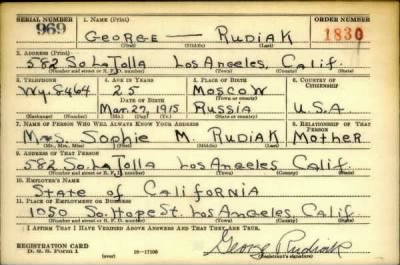 SERIAL NUMBER 1. NAME (Print) ORDER NUMBER
969 GEORGE — RUDIAK 1830
(First) (Middle) (Last)
2. ADDRESS (Print)
582 So. La Jolla Los Angeles, Calif.
(Number and street or R. F. D. number) (Town) (County) (State)
3. TELEPHONE 4. AGE IN YEARS 5. PLACE OF BIRTH 6. COUNTRY OF CITIZENSHIP
25 Moscow
DATE OF BIRTH (Town or county)
Wy. 8464 Mar. 27, 1915 Russia U.S.A.
(Exchange) (Number) (Mo.) (Day) (Yr.) (State or country)
7. NAME OF PERSON WHO WILL ALWAYS KNOW YOUR ADDRESS 8. RELATIONSHIP OF THAT PERSON
Mrs. Sophie M. Rudiak Mother
(Mr., Mrs., Miss) (First) (Middle) (Last)
9. ADDRESS OF THAT PERSON
582 So. La Jolla Los Angeles Calif.
(Number and street or R. F. D. number) (Town) (County) (State)
10. EMPLOYER'S NAME
State of California
11. PLACE OF EMPLOYMENT OR BUSINESS
1050 So. Hope St. Los Angeles, Calif
(Number and street or R. F. D. number) (Town) (County) (State)
I AFFIRM THAT I HAVE VERIFIED ABOVE ANSWERS AND THAT THEY ARE TRUE.
REGISTRATION CARD
D. S. S. Form 1 (over) 16—17105 George Rudiak
(Registrant's signature)